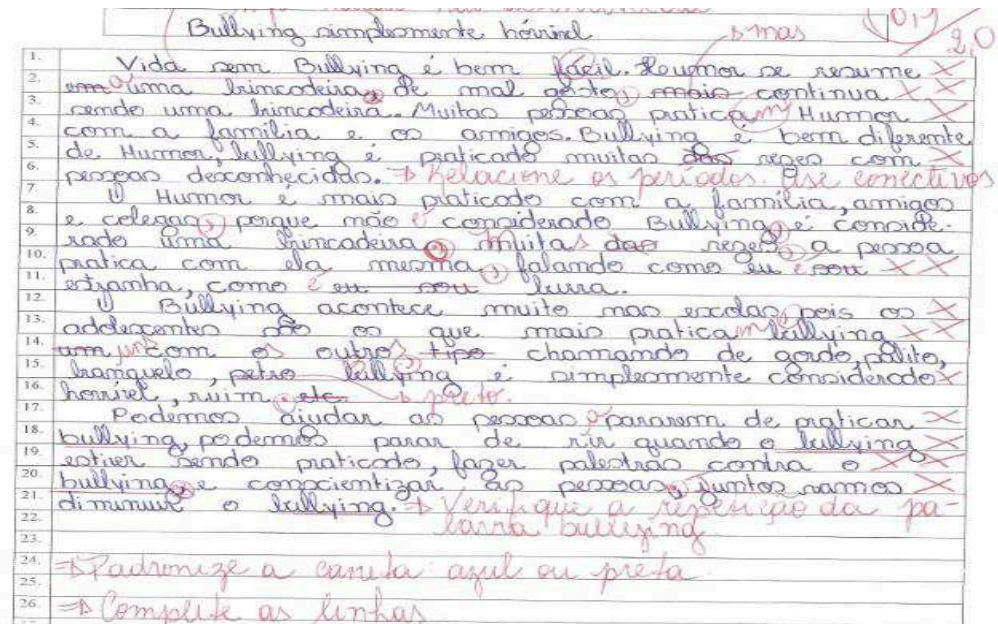 Bullying simplesmente hórrivel
→ mas
0,9/2,0
1. Vida sem Bullying é bem fácil. Houmor se resume X
2. em a uma brincadeira, de mal gosto, mais continua X X
3. sendo uma brincadeira. Muitas pessoas praticam Humor X
4. com a família e os amigos. Bullying é bem diferente
5. de Humor, bullying é praticado muitas das vezes com X
6. pessoas desconhecidas. ⇒ Relacione os períodos. Use conectivos
7. O Humor é mais praticado com a família, amigos
8. e colegas, porque não é considerado Bullying, é conside-
9. rado uma brincadeira. Muitas das vezes, a pessoa
10. pratica com ela mesma, falando como eu sou X X
11. estranha, como eu sou burra.
12. O Bullying acontece muito nas escolas, pois os X
13. adolescentes são os que mais praticam bullying X X
14. um uns com os outros, tipo chamando de gordo, palito,
15. branquelo, petro bullying é simplesmente considerado X
16. horrível, ruim. etc. → preto.
17. Podemos ajudar as pessoas a pararem de praticar X
18. bullying, podemos parar de rir quando o bullying X
19. estiver sendo praticado, fazer palestras contra o X X
20. bullying, e conscientizar as pessoas, juntos vamos X
21. diminuir o bullying. ⇒ Verifique a repetição da pa-
22. lavra bullying
23.
24. ⇒ Padronize a caneta: azul ou preta.
25.
26. ⇒ Complete as linhas